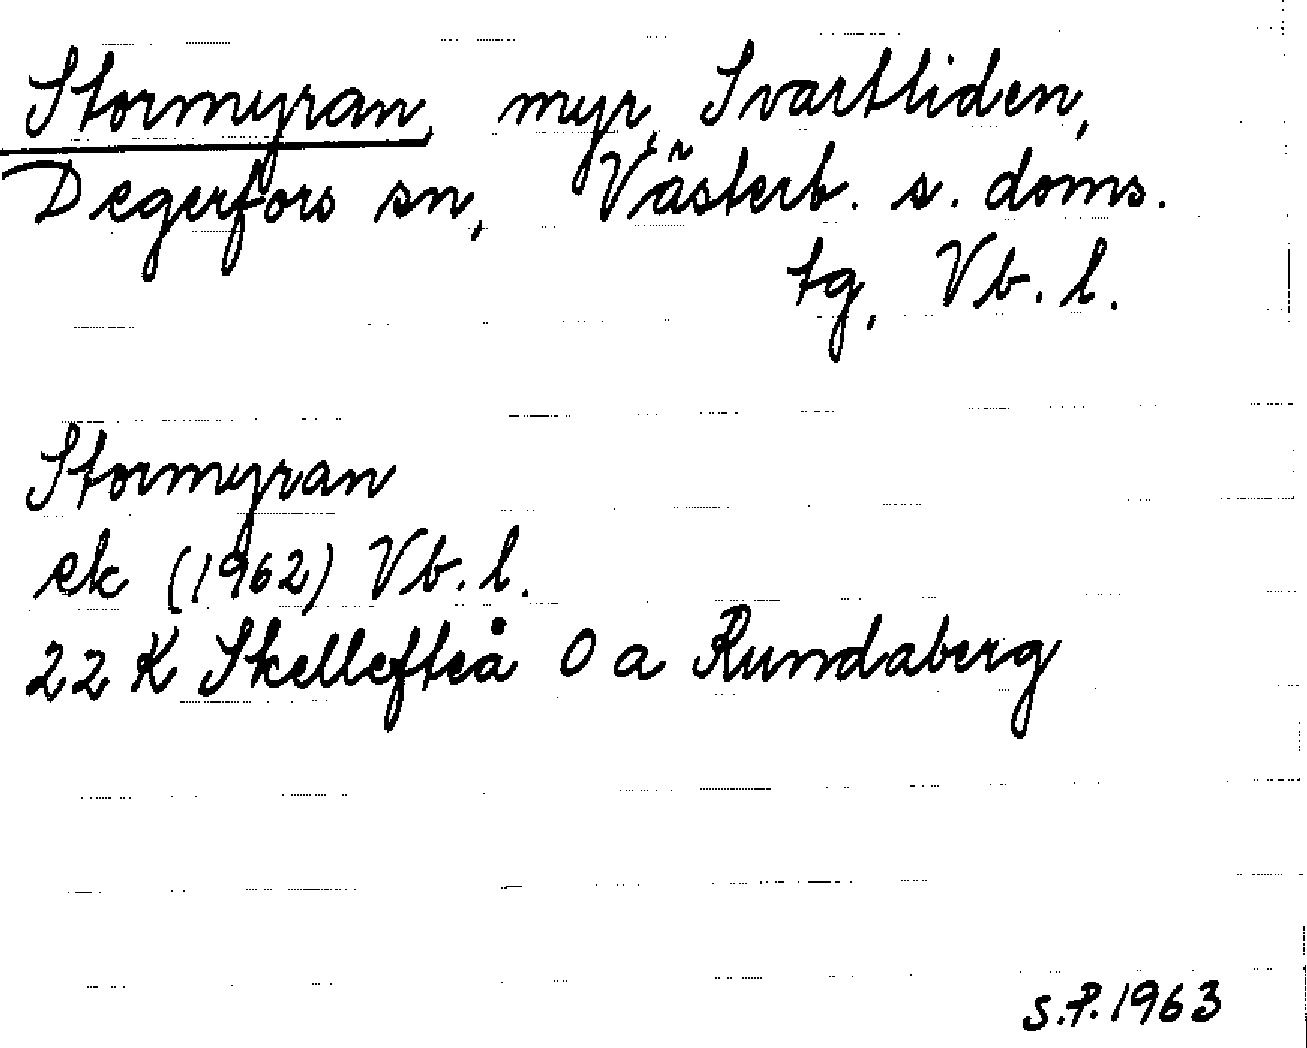 Stormyran, myr, Svartliden,
Degerfors sn, Västerb. s. doms.
tg, Vb. l.
Stormyran
ek (1962) Vb. l.
22 K Skellefteå 0 a Rundaberg
S.P. 1963